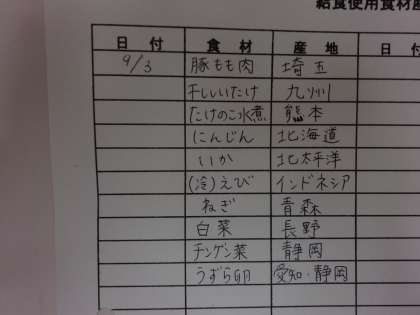 給食使用食材産
日 付 食 材 産 地 日 付
9/3 豚もも肉 埼玉
干しいたけ 九州
たけのこ水煮 熊本
にんじん 北海道
いか 北太平洋
(冷)えび インドネシア
ねぎ 青森
白菜 長野
チンゲン菜 静岡
うずら卵 愛知・静岡